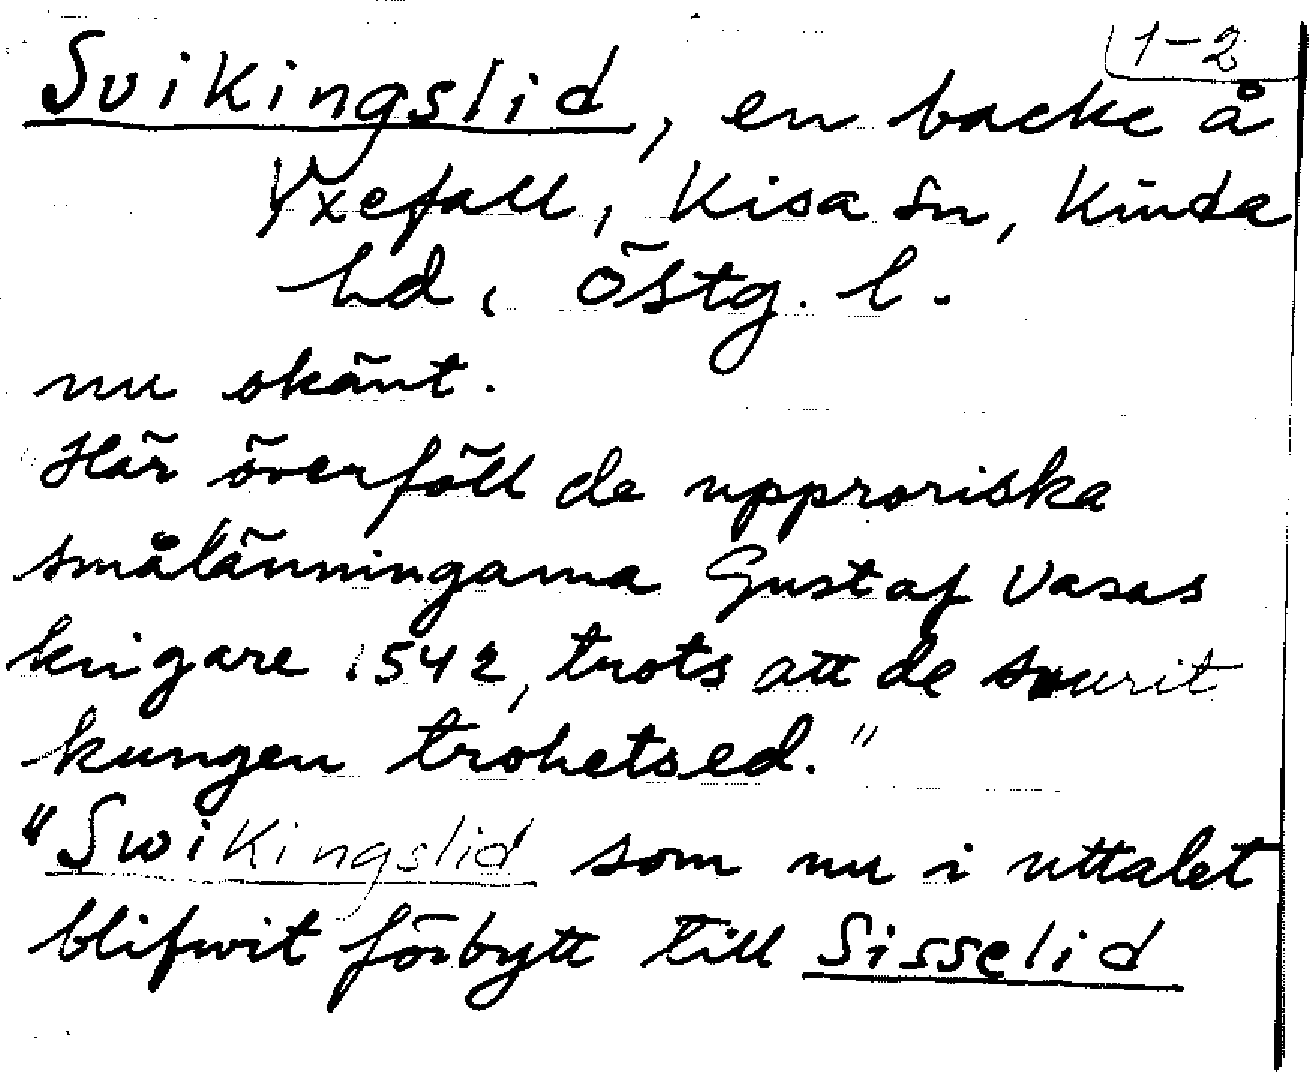 1-2
Svikingslid, en backe å
Yxefall, Kisa sn, Kinda
hd, Östg. l.
nu okänt.
Här överföll de upproriska
smålänningarna Gustaf Vasas
krigare 1542, trots att de svurit
kungen trohetsed."
"Swikingslid som nu i uttalet
blifwit förbytt till Sisselid